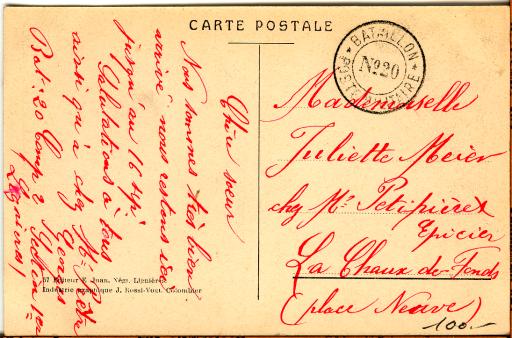 CARTE POSTALE
BATAILLON
No 20
POSTE MILITAIRE
Chère soeur
Nous sommes très bien
arrivé nous restons ici
jusqu'au 16 spt.
Salutations à tous
ainsi qu'à chez Mr
Bat: 20 Comp 2
Mademoiselle
Juliette Meier
chez Mr Petipièrez
Epicier
La Chaux-de-Fonds
(place Neuve)
100.-
57 Editeur E. Juan, Négt. Lignières
Industrie graphique J. Rossi-Vogt, Colombier